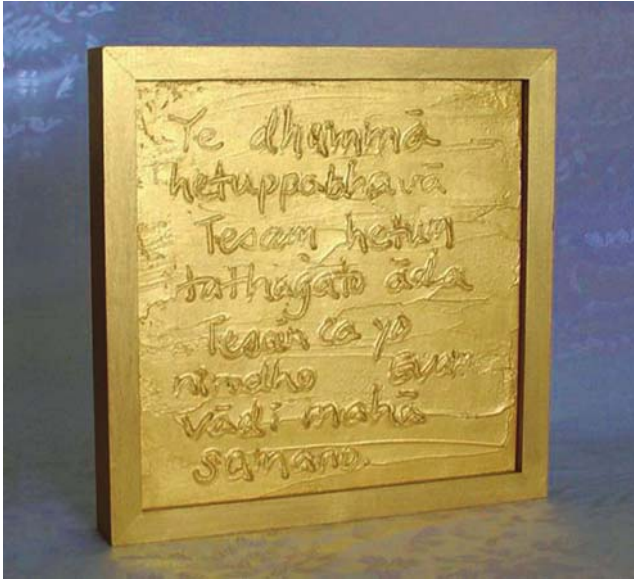 Ye dhammā
hetuppabhavā
Tesam hetum
tathagato āda
Tesañ ca yo
nirodho evam
vādi mahā
samano.